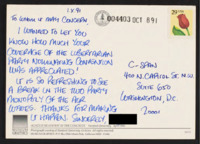 TO WHOM IT MAY CONCERN
I WANTED TO LET YOU
KNOW HOW MUCH YOUR
COVERAGE OF THE LIBERTARIAN
PARTY NOMINATING CONVENTION
WAS APPRECIATED!
IT IS SO REFRESHING TO SEE
A BREAK IN THE TWO PARTY
MONOPOLY OF THE AIR
WAVES. THANKS FOR MAKING
IT HAPPEN. SINCERELY,
004403 OCT 891
29
C-SPAN
400 N. CAPITOL ST. N.W.
SUITE 650
WASHINGTON, DC
20001